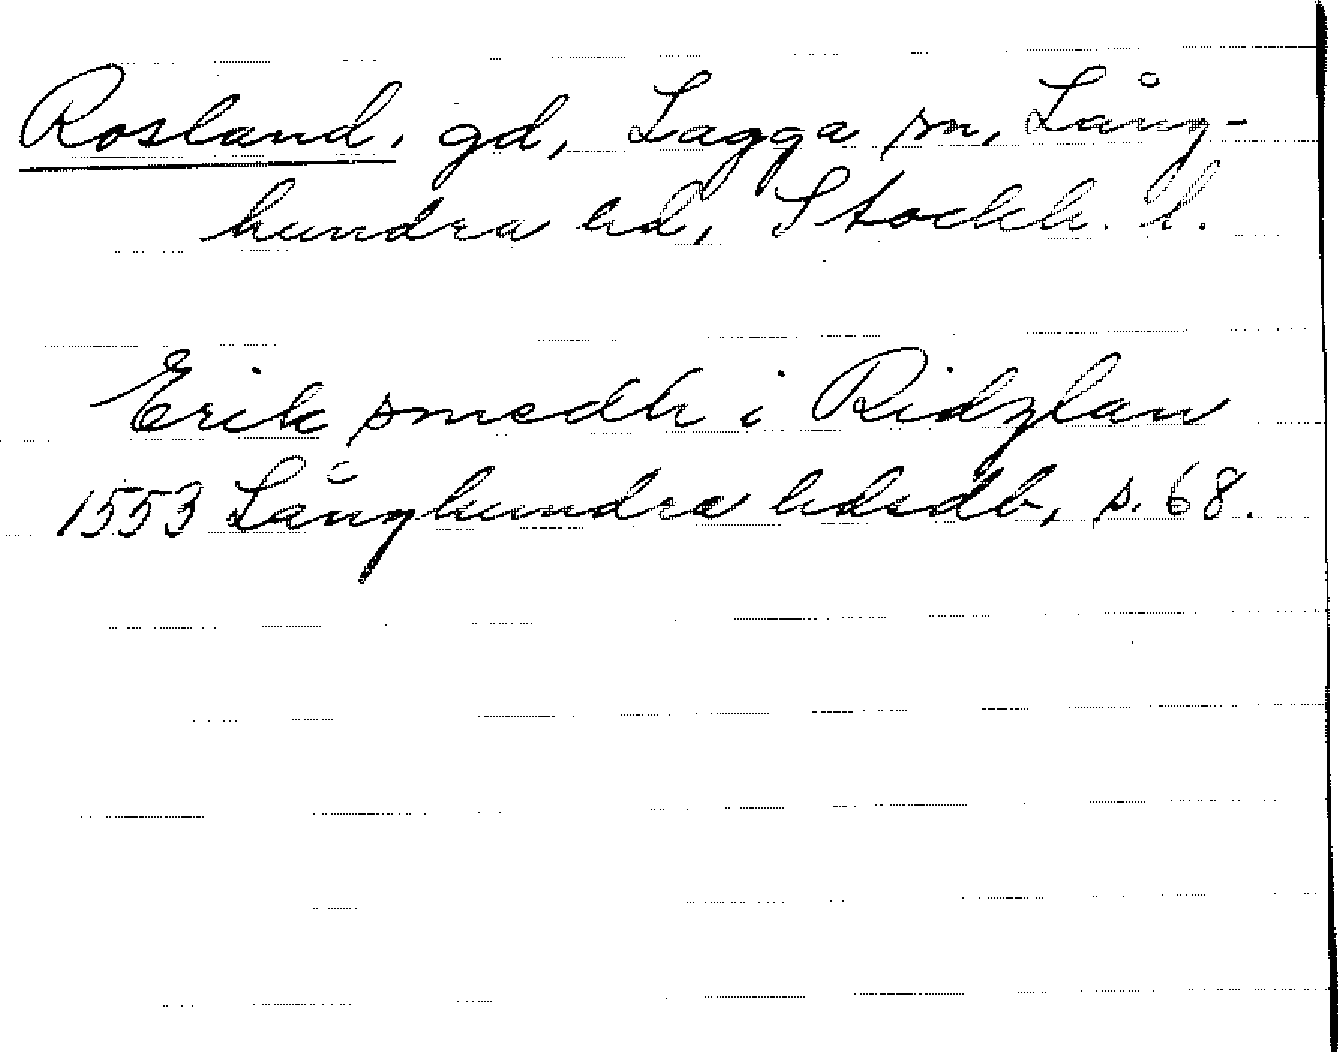 Rosland, gd, Lagga sn, Lång-
hundra hd, Stockh. l.
Erik smedh i Ridzlan
1553 Långhundra hdsdb, s. 68.